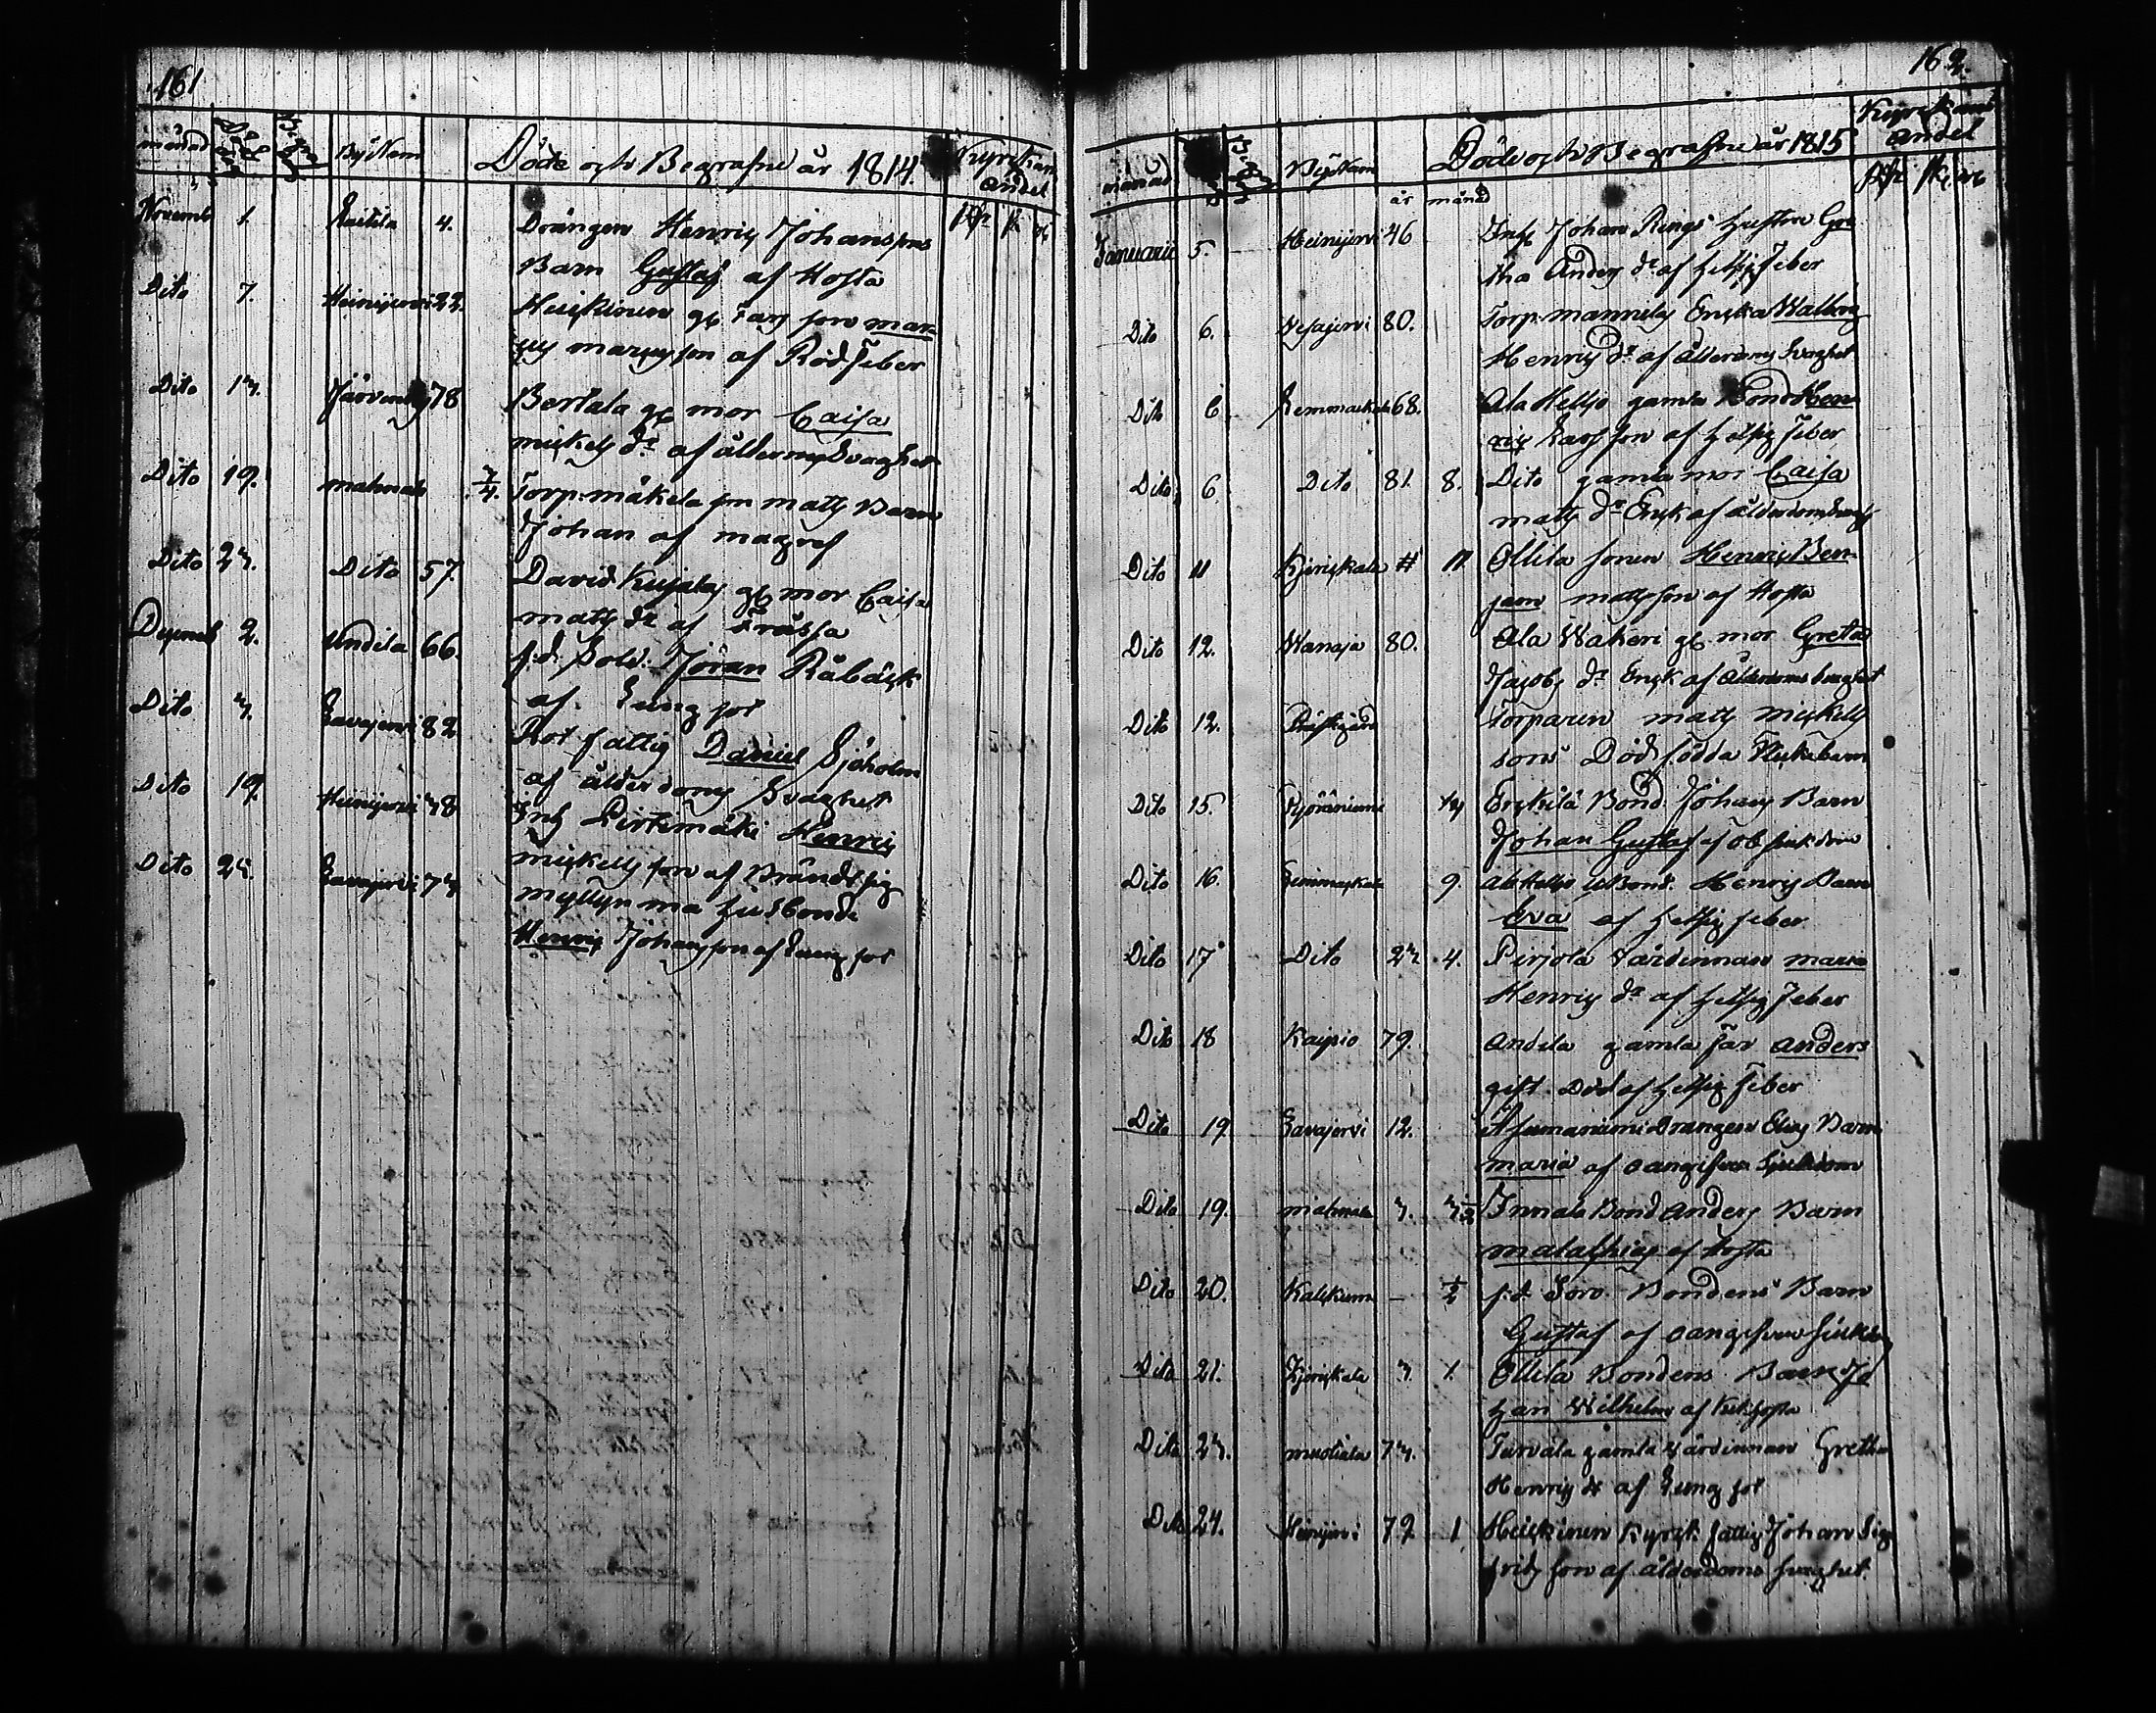 161
månad Bÿ Nam Döde och Begrafne år 1814. Kyrckans andel
Novemb 1. Laitila 4. Drängen Henric Johanssons
Barn Gustaf af Hosta
Dito 7. Heinijervi 22. Heickinen gl Fars son mar
cus marcusson af Röd Feber
Dito 13. 78 Bertala gl mor Caisa
mickels dr af ålderns Svaghet
Dito 19. mahnala 3/4. Torp. mäkela son matts Barn
Johan af magref
Dito 23. Dito 57. David Kujalas gl mor Caisa
matts dr af Frässa
Decemb 2. Undila 66. f:d: Sold. Jöran Råbäck
af Lung sot
Dito 3. Savajervi 82 Rotfattig Daniel Sjöholm
af ålderdoms Svaghet
Dito 19. Heinijervi 38 Inh Pirkemäki Henric
mickells son af Brändsiug
Dito 25. Savajervi 73 myllynma husbonde
Henric Johansson af Lung sot
162.
månad Bÿ Nam Döde och Begrafne år 1815 Kyrckans andel
år månad
Januarii 5. Heinijervi 46 Inh Johan Rings hustru Gre
tha Anders dr af hetsig Feber
Dito 6. Vesajervi 80. Torp. mannilas Encka Walborg
Henrics dr af ålderdoms Svaghet
Dito 6 Lemmackala 68. Ala Heljo gamla Bond Hen
ric Larsson af hetsig Feber
Dito 6. Dito 81. 8. Dito gamla mor Caisa
matts dr Enck af ålderdom
Dito 11 Kjerickala 11. Ollila sonen Henric Ben
jam mattsson af Hosta
Dito 12. Wanaja 80. Ala Wakeri gl. mor Greta
Jacobs dr Enck af ålderdoms svaghet
Dito 12. Torparen matts mickells
sons Död födda Flickebarn
Dito 15. Erckilä Bond. Johans Barn
Johan Gustaf af ob siukdom
Dito 16. Lemmackala 9. Ala Heljo Bond. Henrics Barn
Eva af hetsig feber
Dito 17 Dito 23 4. Pirjola värdinnan maria
Henrics dr af hetsig Feber
Dito 18 Kaipio 79. Andila gamla far anders
gift Död af hetsig Feber
Dito 19 Savajervi 12. Drängen Elias Barn
maria af oangifven Sjukdom
Dito 19. mahnala 3. Innala Bond Anders Barn
matathias af Hosta
Dito 20. Kalckum — 1/2 f.d. Bondens Barn
Gustaf af oangifven siukdom
Dito 21. Kjerickala 3 1. Ollila Bondens Barn Jo
han Wilhelm af Kickhosta
Dito 23. muotiala 73. Turvala gamla värdinnan Gretha
Henrics dr af Lung sot
Dito 24. Heinijervi 79. 1 Heickinen Kyrck fattig Johan Sig
frids son af ålderdoms svaghet.